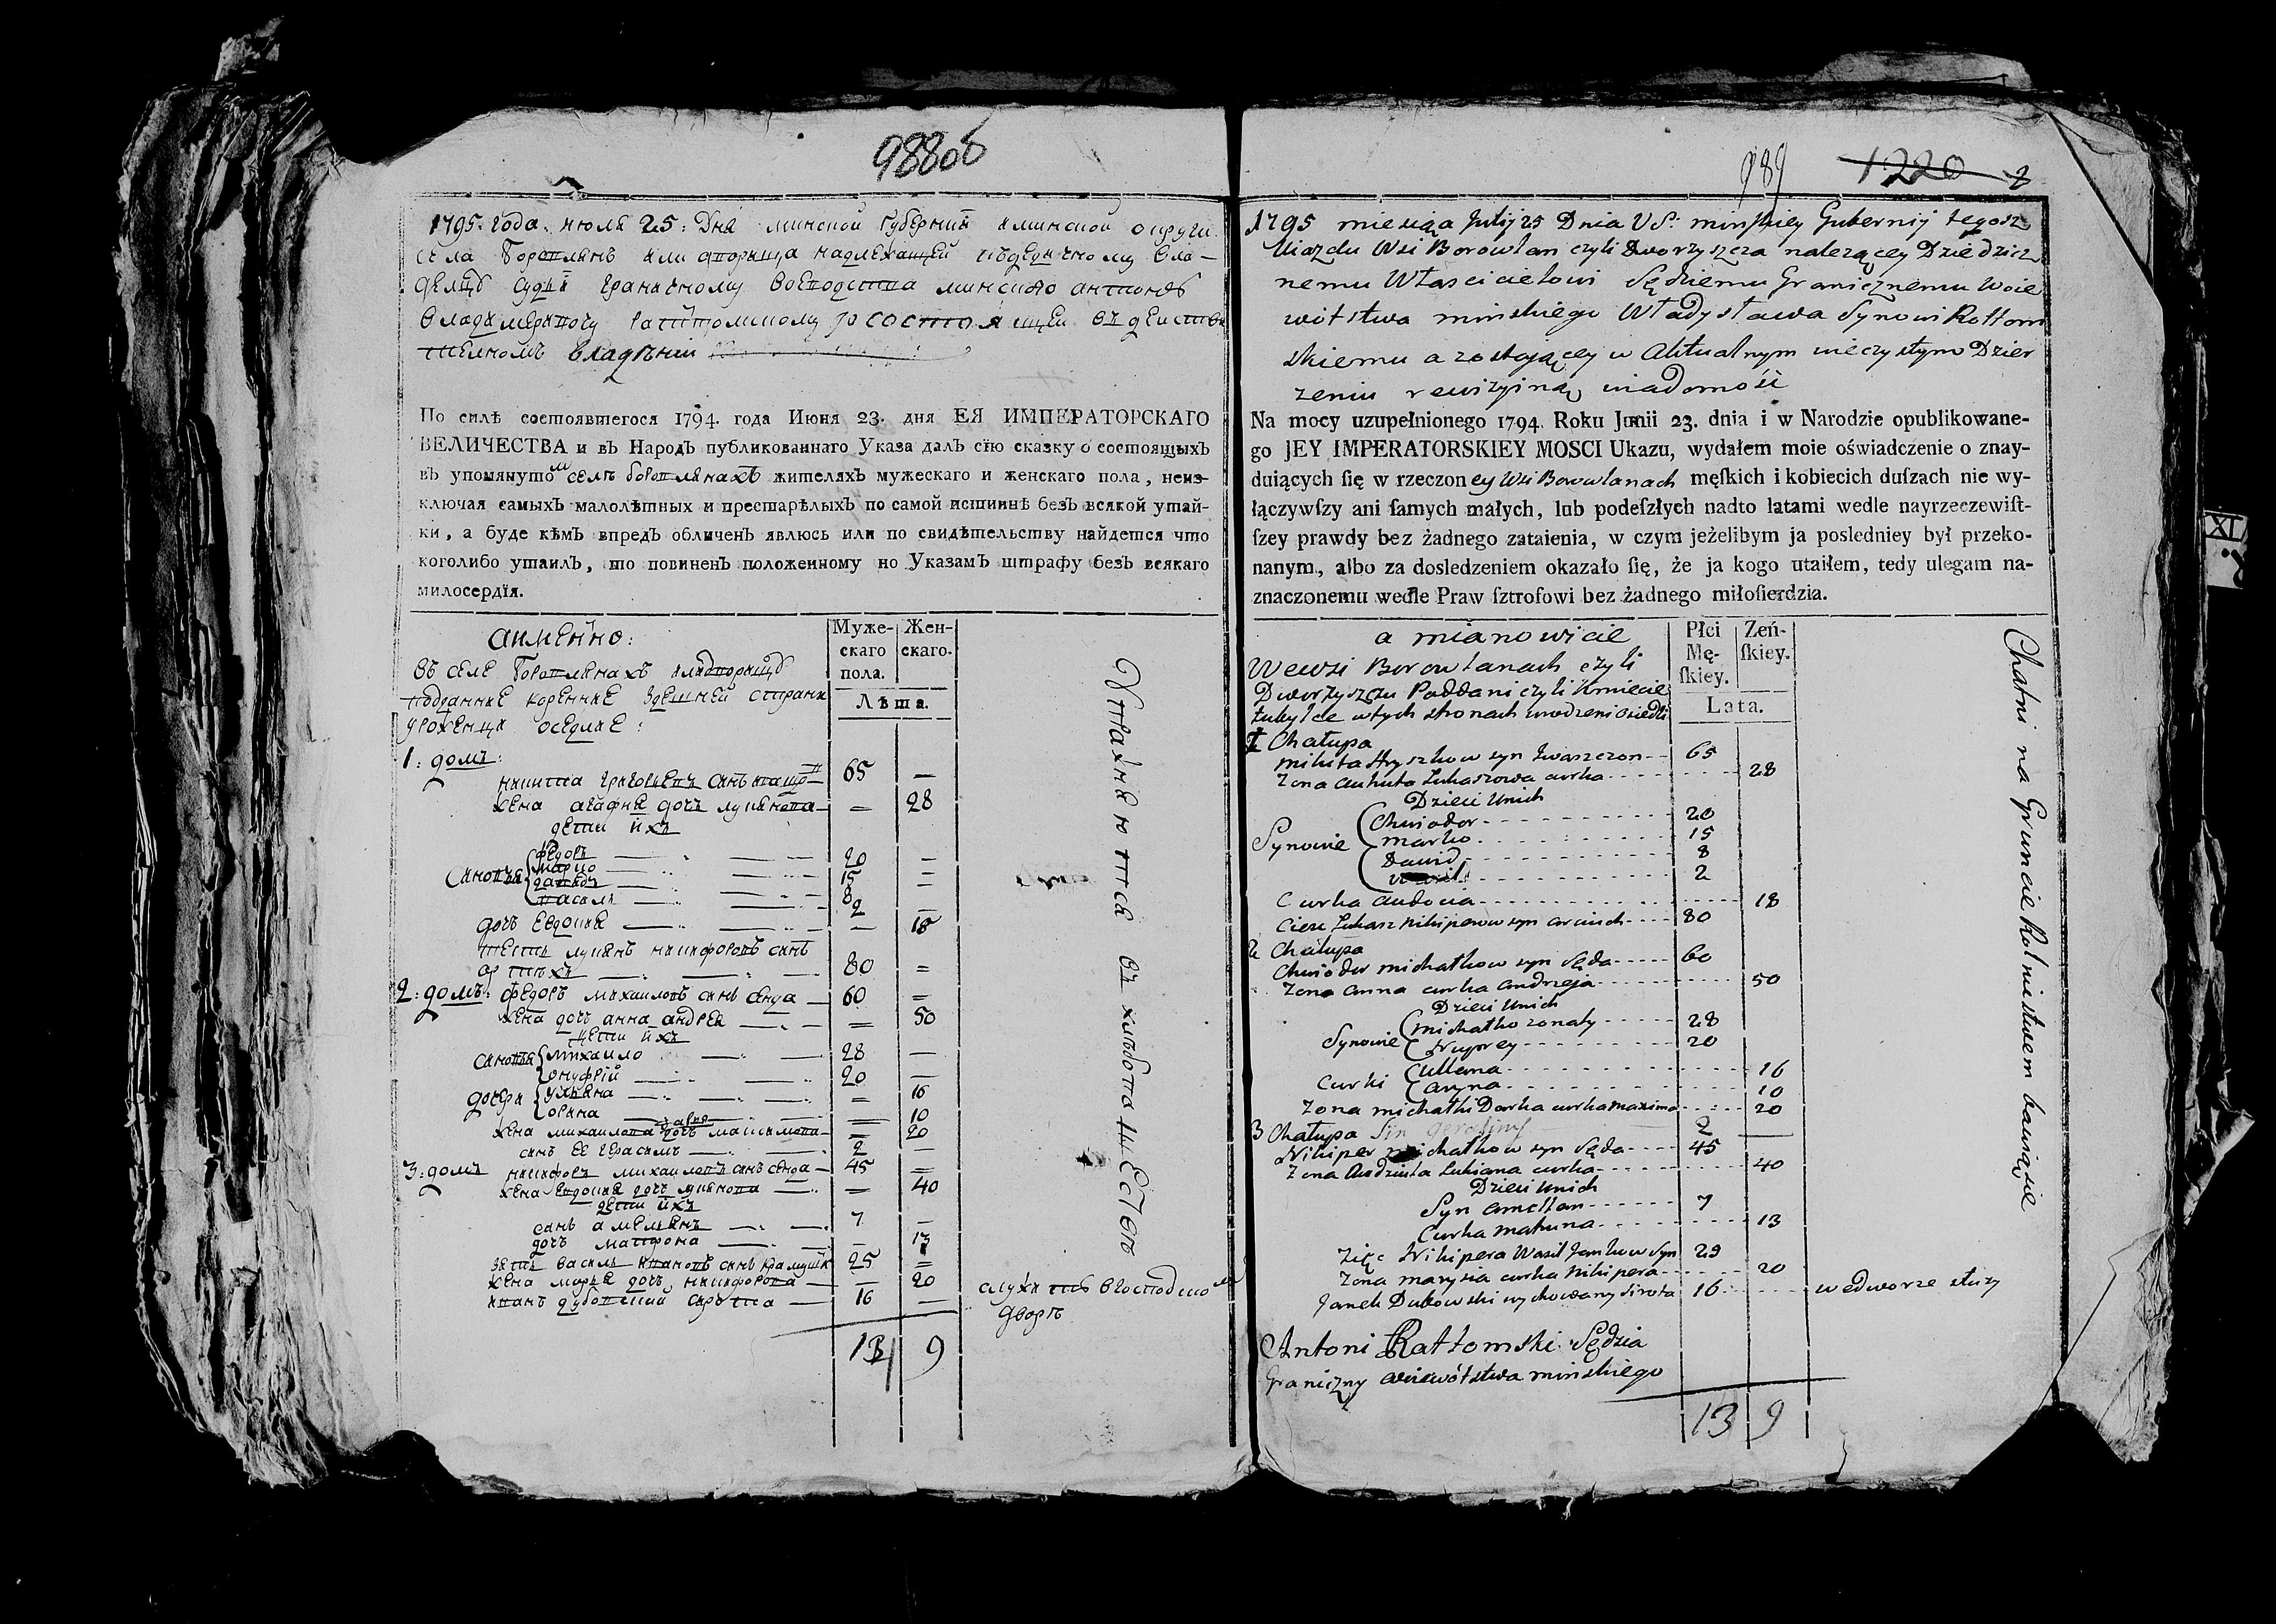 988об
1795. года. июля 25: Дня минской Губернии и минской округи
села Боровлянъ или дворища надлежащей наследичному вла-
дельцу судьи граничному воеводства минскаго антонию
владимерову ратомскому состоящей въ действи
тельномъ владении
По силѣ состоявшегося 1794. года Июня 23. дня ЕЯ ИМПЕРАТОРСКАГО
ВЕЛИЧЕСТВА и въ Народъ публикованнаго Указа далъ сїю сказку о состоящыхъ
въ упомянутом селе боровлянахъ жителяхъ мужескаго и женскаго пола, неиз-
ключая самыхъ малолѣтныхъ и престарѣлыхъ по самой истиннѣ безъ всякой утай-
ки, а буде кѣмъ впредъ обличенъ явлюсь или по свидѣтельству найдется что
коголибо утаилъ, то повиненъ положенному по Указамъ штрафу безъ всякаго
милосердїя.
аименно:
Муже-
скаго
пола.
Жен-
скаго.
Лѣта.
въ селе Боровлянахъ или дворищу
подданние коренние здешней страни
уроженци оседлие:
1: домъ:
никита григорьевъ синъ 65 —
жена агафия дочь лукянова — 28
дети ихъ
Синовья федоръ 20 —
марко 15 —
давидъ 8
василь 2 —
дочь евдокия — 18
тесть лукянъ никифоровъ синъ
80 —
2: домъ: федоръ михаиловъ синъ сенда 60 —
жена дочь анна андрея — 50
дети ихъ
Синовья михаило 28 —
онуфрий 20 —
дочери ульяна — 16
орина — 10
жена михаилова дарья дочь максимова — 20
синъ ее герасимъ 2 —
3: домъ никифоръ михаиловъ синъ сенда 45 —
жена евдокия дочь лукянова — 40
дети ихъ
синъ амелянъ 7 —
дочь матрона — 13
зять василь ивановъ синъ 25 —
жена марья дочь никифорова — 20
иванъ дубовский сирота 16 —
служитъ в господском
дворѣ
13 9
Упражняются въ хлебопашестве
989 1220 8
1795 miesiąca Julij 25 Dnia V S: minskiey Gubernij tegosz
Uiazdu Wsi Borowlan czyli Dworzyszcza nalezącey Dziedzicz
nemu Własicielowi Sędziemu Granicznemu Woie
wotstwa minskiego Władysława Synowi Rattom
skiemu a zostającey w Aktualnym wieczystym Dzier
zeniu rewizyiną wiadomość
Na mocy uzupełnionego 1794. Roku Junii 23. dnia i w Narodzie opublikowane-
go JEY IMPERATORSKIEY MOSCI Ukazu, wydałem moie oświadczenie o znay-
duiących ſię w rzeczoney Wsi Borowlanach męſkich i kobiecich duſzach nie wy-
łączywſzy ani ſamych małych, lub podeſzłych nadto latami wedle nayrzeczewiſt-
ſzey prawdy bez żadnego zataienia, w czym jeżelibym ja posledniey był przeko-
nanym, albo za dosledzeniem okazało ſię, że ja kogo utaiłem, tedy ulegam na-
znaczonemu wedle Praw ſztrofowi bez żadnego miłoſierdzia.
a mianowicie
Płci
Mę-
ſkiey.
Zeń-
ſkiey.
Lata.
Wewsi Borowlanach czyli
Dworzyszczu Poddani czyli Kmiecie
tubylcze wtych stronach urodzeni osiedli
1 Chałupa
mikita Hryszkow syn Iwaszczon 65
Zona Auhuta Łukaszowa curka 28
Dzieci Unich
Synowie Chwiodor 20
marko 15
Dawid 8
2
Curka Audocia 18
Ciesc Łukasz Nikiperow syn 80
2 Chałupa
Chwiodor michałkow syn Sęda 60
Zona Anna curka Andrzeja 50
Dzieci Unich
Synowie michałko zonaty 28
Nuprey 20
Curki Ullana 16
Aryna 10
Zona michałki Darka curka maxima 20
3 Chałupa Sin gerasim 2 —
Nikiper michałkow syn Sęda 45
Zona Audziuta Łukiana curka 40
Dzieci Unich
Syn Amellan 7
Curka matruna 13
Zięc Nikipera Wasil Jankow Syn 29
Zona marysia curka Nikipera 20
Janek Dubowski wychowany Sirota 16 wedworze słuzy
Antoni Rattomski Sędzia
Graniczny woiewótstwa minskiego
13 9
Chatni na Gruncie Rolnictwem bawią sie
XI